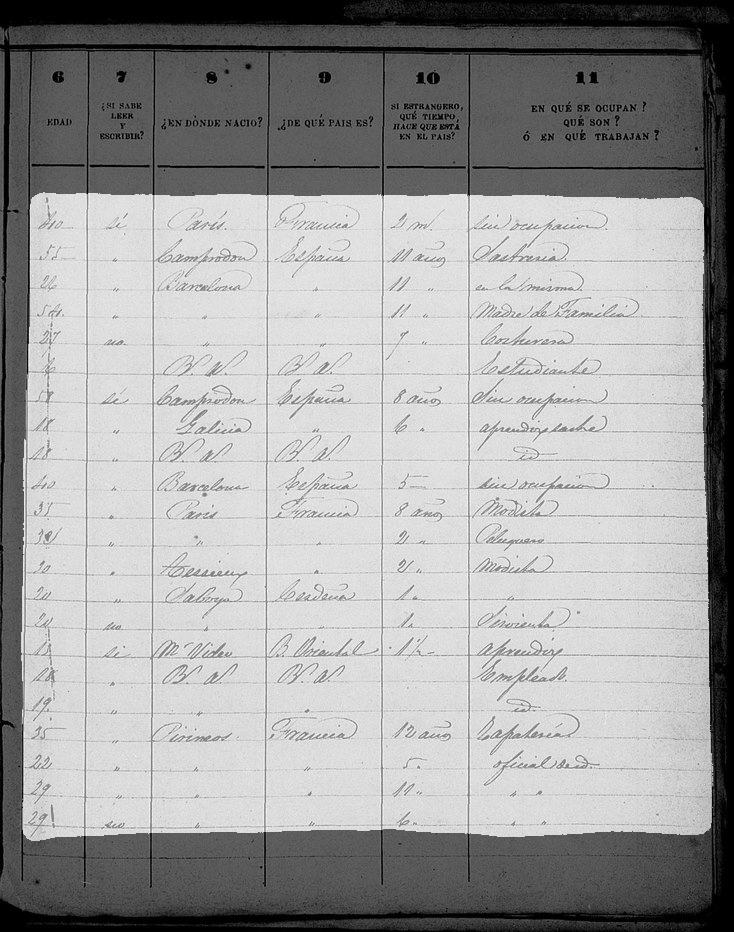 6 7 8 9 10 11
EDAD ¿SI SABE LEER Y ESCRIBIR? ¿EN DÓNDE NACIO? ¿DE QUÉ PAIS ES? SI ESTRANGERO, QUÉ TIEMPO HACE QUE ESTÁ EN EL PAIS? EN QUÉ SE OCUPAN? QUÉ SON? Ó EN QUÉ TRABAJAN?
40 sí París. Francia 2 m. sin ocupacion.
55 " Camprodon España 11 años Sastreria.
26 " Barcelona " 11 " en la misma.
50 " " " 11 " Madre de Familia
27 no " " 7 " Costurera
B. A. B. A. Estudiante
58 sí Camprodon España 8 años Sin ocupacion
18 " Galicia " 6 " aprendiz sastre
18 " B. A. B. A. id
40 " Barcelona España 5 — sin ocupacion
35 " Paris Francia 8 años Modista
" " " 2 " Peluquero
20 " " 2 " Modista
20 " Saboya Cerdeña 1 " "
20 no " " 1 " Sirvienta
15 si Mte Video B. Oriental 1½ — aprendiz
18 " B. A. B. A. Empleado.
19. " " " id.
35 " Pirineos Francia 12 años Zapateria
22 " " " 5 " oficial de id.
29 " " " 10 " " "
29 no " " 6 " " "